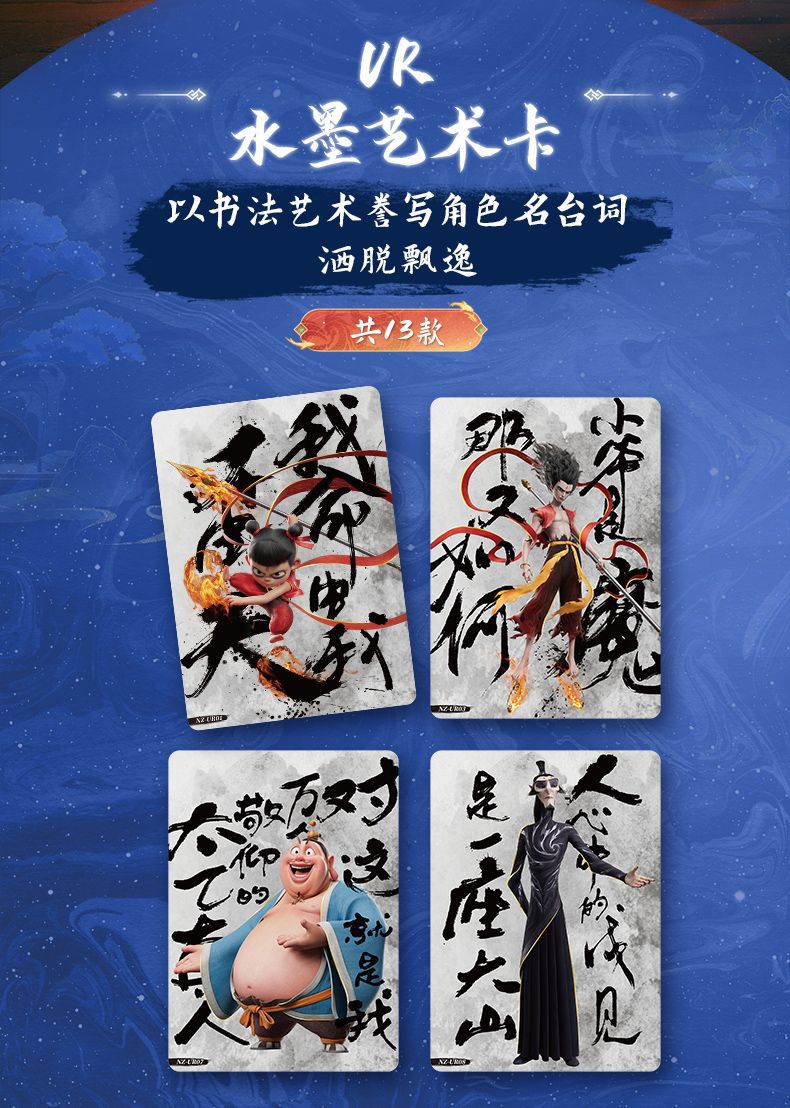 UR
水墨艺术卡
以书法艺术誊写角色名台词
洒脱飘逸
共13款
我命由我
不由天
NZ-UR01
小爷是魔
那又如何
NZ-UR03
对这就是我
万人
敬仰的
太乙真人
NZ-UR07
人心中的成见
是一座大山
NZ-UR08